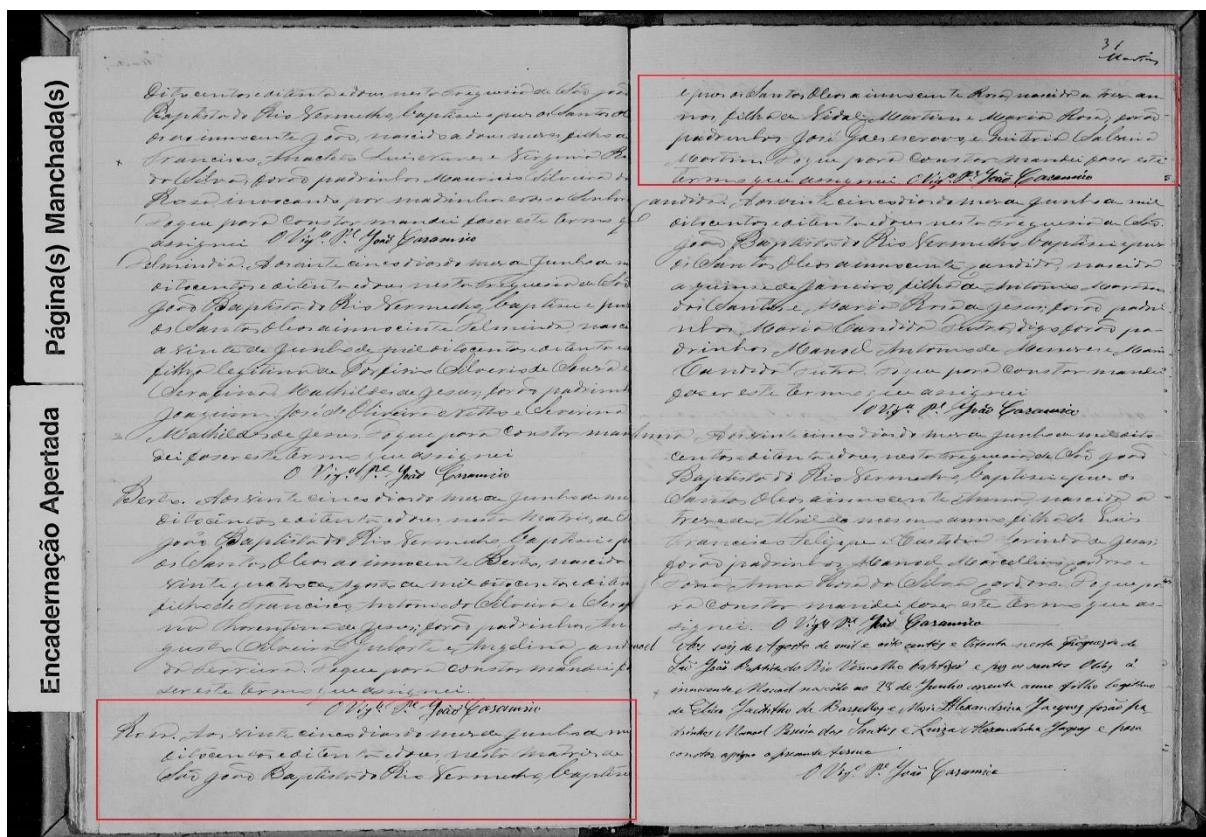 Página(s) Manchada(s)
Encadernação Apertada
oitocentos e oitenta e dous nesta Freguesia de São João
Baptista do Rio Vermelho, baptisei e pus os Santos Ol
eos ao innocente João, nascido a dous meses, filho de
Francisco Nunes e Virginia Ro
da Silva, forão padrinhos Mauricio Silveira da
Rosa, invocando por madrinha a Nossa Senhora
Do que para constar mandei faser este termo q
assignei O Vigº Pe João Casamico
Aos vinte cinco dias do mes de Junho de m
oitocentos e oitenta e dous nesta Freguesia de São
João Baptista do Rio Vermelho, baptisei e pus
os Santos Oleos a innocente nasci
a vinte de Junho de mil oitocentos e oitenta e
filha legitima de Porfirio Silverio de Souza e
Serafina Mathildes de Jesus, forão padrinho
Joaquim José de Oliveira Netto e Severina
Mathildes de Jesus. Do que para constar man
dei faser este termo que assignei
O Vigº Pe João Casamico
Aos vinte cinco dias do mes de Junho de m
oitocentos e oitenta e dous nesta Matris de S
João Baptista do Rio Vermelho, baptisei e pu
os Santos Oleos ao innocente nascido
vinte quatro de Agosto de mil oitocentos e oiten
filho de Francisco Antonio da Silveira e Sera
Florentina de Jesus, forão padrinhos Au
gusto Silveira e
da Do que para constar mandei fa
ser este termo que assignei.
O Vigº Pe João Casamico
Rosa. Aos vinte cinco dias do mes de Junho de m
oitocentos e oitenta e dous nesta matris de
São João Baptista do Rio Vermelho, baptisei
31
Martins
e pus os Santos Oleos a innocente Rosa, nascida a tres an
nos, filha de Vidal Martins e Maria Rosa, forão
padrinhos José escravo, e Sabina
Martins. Do que para constar mandei faser este
termo que assignei. O Vigº Pe João Casamico
Candida. Aos vinte cinco dias do mes de Junho de mil
oitocentos e oitenta e dous nesta Freguesia de São
João Baptista do Rio Vermelho, baptisei e pus
os Santos Oleos a innocente Candida, nascida
a quinse de Janeiro, filha de Antonio
dos Santos e Maria Rosa de Jesus, forão padri
nhos, Maria Candida Dutra, digo, forão pa
drinhos Manoel Antonio de Meneses e Maria
Candida Dutra. Do que para constar mandei
faser este termo que assignei
O Vigº Pe João Casamico
Anna Aos vinte cinco dias do mes de Junho de mil oito
centos e oitenta e dous nesta Freguesia de São João
Baptista do Rio Vermelho, baptisei e pus os
Santos Oleos a innocente Anna, nascida a
trese de Abril do mesmo anno, filha de Luis
Francisco Felippe e Custodia Lorinda de Jesus;
forão padrinhos Manoel Marcellino Cardoso e
Anna Rosa da Silva Cardosa. Do que pa
ra constar mandei faser este termo que as
signei. O Vigº Pe João Casamico
Manoel Aos seis de Agosto de mil e oito centos e oitenta nesta Freguezia de
São João Baptista do Rio Vermelho baptizei e puz os santos Oleos á
innocente Manoel nascido ao 28 de Junho corrente anno filho legitimo
de Jacintho de e Maria Alexandrina Jaques forão pa
drinhos Manoel Pereira dos Santos e Luiza Alexandrina Jaques e para
constar assigno o presente termo
O Vigº Pe João Casamico